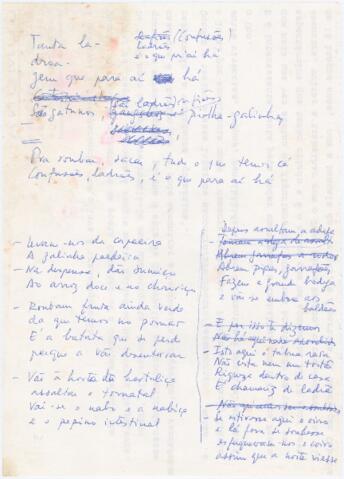 Tanta la-
droa-
gem que para aí há
(Confusões)
ladrões
é o que p'ráí há
São gatunos
ladrões
pilha-galinhas
Pra roubar, sacar, tudo o que temos cá
Confusões, ladrões, é o que para aí há
- Levam-nos da capoeira
A galinha poedeira
- Na despensa, dão sumiço
Ao arroz doce e ao chouriço
- Roubam fruta ainda verde
da que temos no pomar
E a batata que se perde
porque a vão desenterrar
- Vão à horta da hortaliça
assaltar o tomatal
Vai-se o nabo e a nabiça
e o pepino
Depois assaltam a adega
Abrem pipas, garrafões
Fazem grande bodega
e vão-se embora aos
baldões
- E por isso te dizemos
- Isto aqui é tabua rasa
Não está nem um tostão
Riqueza dentro de casa
É chamariz de ladrão
- Se estivesse aqui o ouro
e lá fora se soubesse
o ouro
assim que a noite viesse